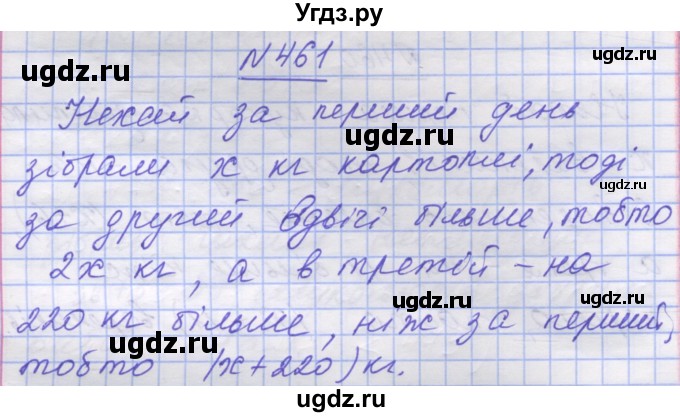 Угдз.ру
№461
ugdz.ru ugdz.ru
Нехай за перший день
ugdz.ru
зібрали x кг картоплі, тоді
ugdz.ru
за другий вдвічі більше, тобто
ugdz.ru
2x кг, а в третій – на
ugdz.ru
220 кг більше, ніж за перший,
ugdz.ru ugdz.ru
тобто (x+220) кг.
ugdz.ru